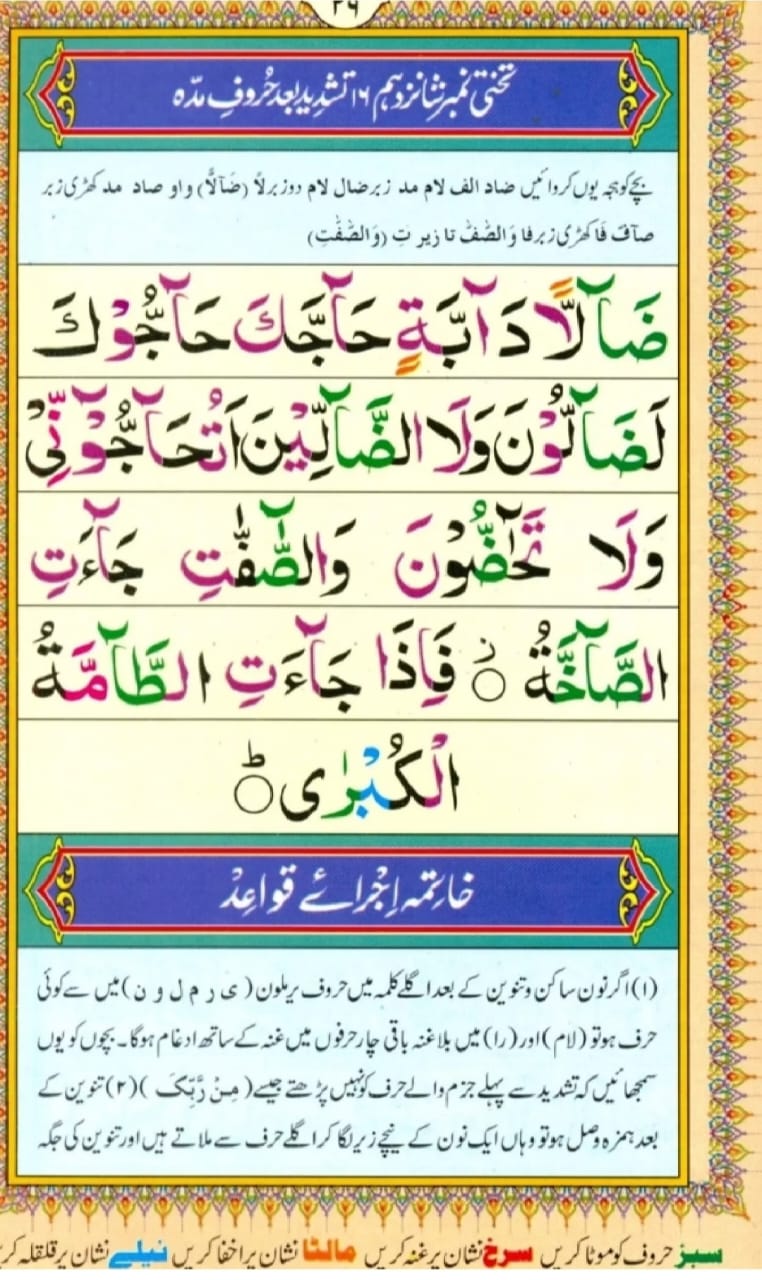 ۲۶
تختی نمبر شانزدہم ۱۶ تشدید بعد حُروفِ مدّہ
بچے کو ہجہ یوں کروائیں ضاد الف لام مد زبر ضال لام دو زبر لاً (ضَآلًّا) واو صاد مد کھڑی زبر
صآفّ فَا کھڑی زبر فا وَالصّٰفّٰ تا زیر تِ (وَالصّٰٓفّٰتِ)
ضَآلًّا دَآبَّةٍ حَآجَّكَ حَآجُّوْكَ
لَضَآلُّوْنَ وَلَا الضَّآلِّيْنَ اَتُحَآجُّوْنِّيْ
وَلَا تَحٰٓضُّوْنَ وَالصّٰٓفّٰتِ جَآءَتِ
الصَّآخَّةُ ۞ز فَاِذَا جَآءَتِ الطَّآمَّةُ
الْكُبْرٰى ○ط
خاتِمہ اِجْرائے قواعِدْ
(۱) اگر نون ساکن و تنوین کے بعد اگلے کلمہ میں حروف یرملون (ی ر م ل و ن) میں سے کوئی
حرف ہو تو (لام) اور (را) میں بلاغنہ باقی چار حرفوں میں غنہ کے ساتھ ادغام ہوگا۔ بچوں کو یوں
سمجھائیں کہ تشدید سے پہلے جزم والے حرف کو نہیں پڑھتے جیسے (مِنْ رَّبِّكَ) (۲) تنوین کے
بعد ہمزہ وصل ہو تو وہاں ایک نون کے نیچے زیر لگا کر اگلے حرف سے ملاتے ہیں اور تنوین کی جگہ
سبز حروف کو موٹا کریں سرخ نشان پر غنہ کریں مالٹا نشان پر اخفا کریں نیلے نشان پر قلقلہ کریں